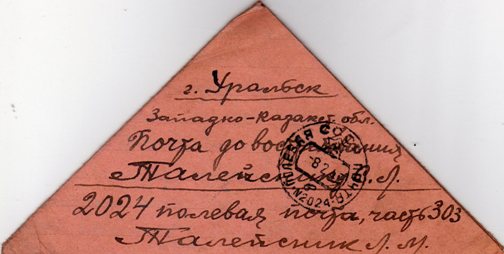 г. Уральск
Западно-Казахст. обл.
Почта до востребования
Талейсник Л.
2024 полевая почта, часть 303
Талейсник Л. М.
ПОЛЕВАЯ ПОЧТА
N2024